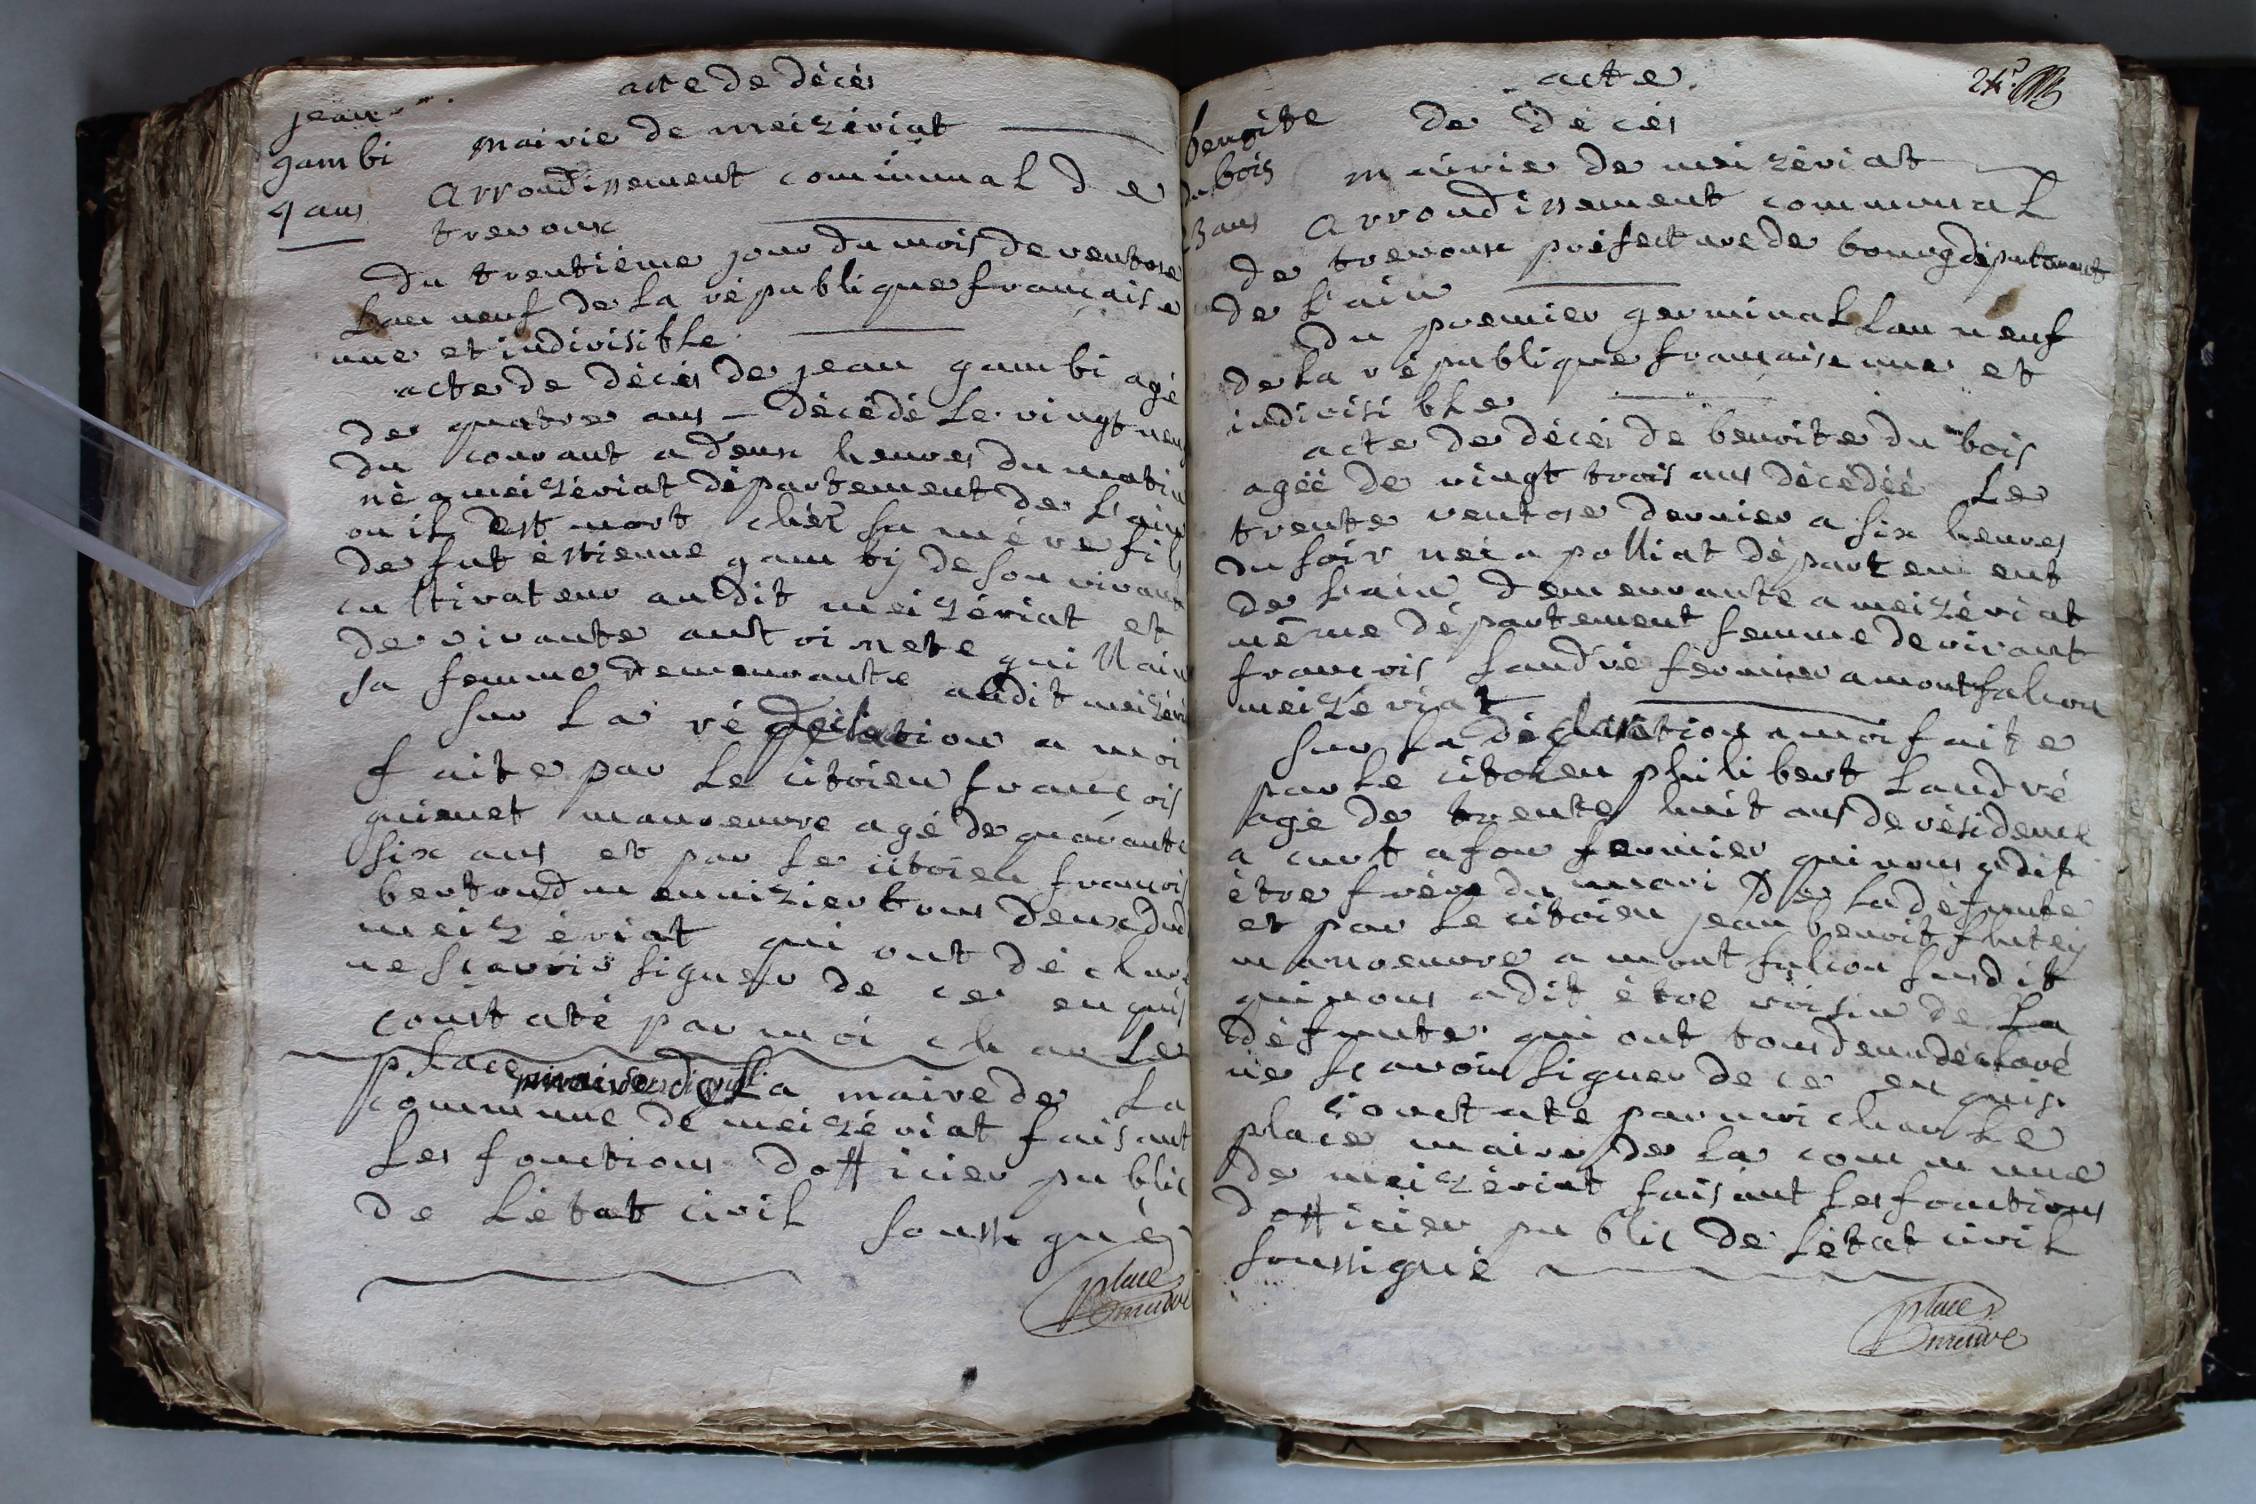 acte de décés
jean
gambi
4 ans
mairie de meizériat
arrondissement communal de
trevoux
du trentième jour du mois de ventose
Lan neuf de la république française
une et indivisible
acte de décés de jean gambi agé
de quatre ans décédé Le vingt neuf
du courant a deux heures du matin
né a meizériat département de L'ain
ou il est mort chéz sa mére fils
de fut éstienne gambij de son vivant
cultivateur audit meizériat et
de vivante antoinete guillain
sa femme demeurante audit meizéri
sur La ré tion a moi
faite par Le citoien françois
guienet manoeuvre agé de quarante
six ans et par Le citoien françois
bertoud menuizier tous deux dud
meizériat qui ont déclaré
ne sçavoir signer de ce enquis
constaté par moi charLe
place La maire de La
commune de meizériat faisant
Les fonctions dofficier public
de Létat civil soussigné
place
maire
acte
de décés
benoite
du bois
23 ans
mairie de meizériat
arrondissement communal
de trevoux préfecture de bourg département
de L'ain
du premier germinal Lan neuf
de La république française une et
indivisible
acte de décés de benoite du bois
agéé de vingt trois ans décédéé Le
trente ventose dernier a six heures
du soir neé a polliat département
de Lain demeurante a meizériat
même département femme de vivant
françois Landré fermier a montfalcon
meizériat
sur La déclaration a moi faite
par Le citoien philibert Landré
agé de trente huit ans de résidence
a curtafon fermier qui nous a dit
être frére du mari de La défunte
et par Le citoien jean benoit
manoeuvre a montfalcon susdit
qui nous a dit être voisin de La
défunte qui ont tous deux déclaré
ne sçavoir signer de ce enquis
constaté par moi charLe
place maire de La commune
de meizériat faisant Les fonctions
dofficier public de Létat civil
soussigné
place
maire